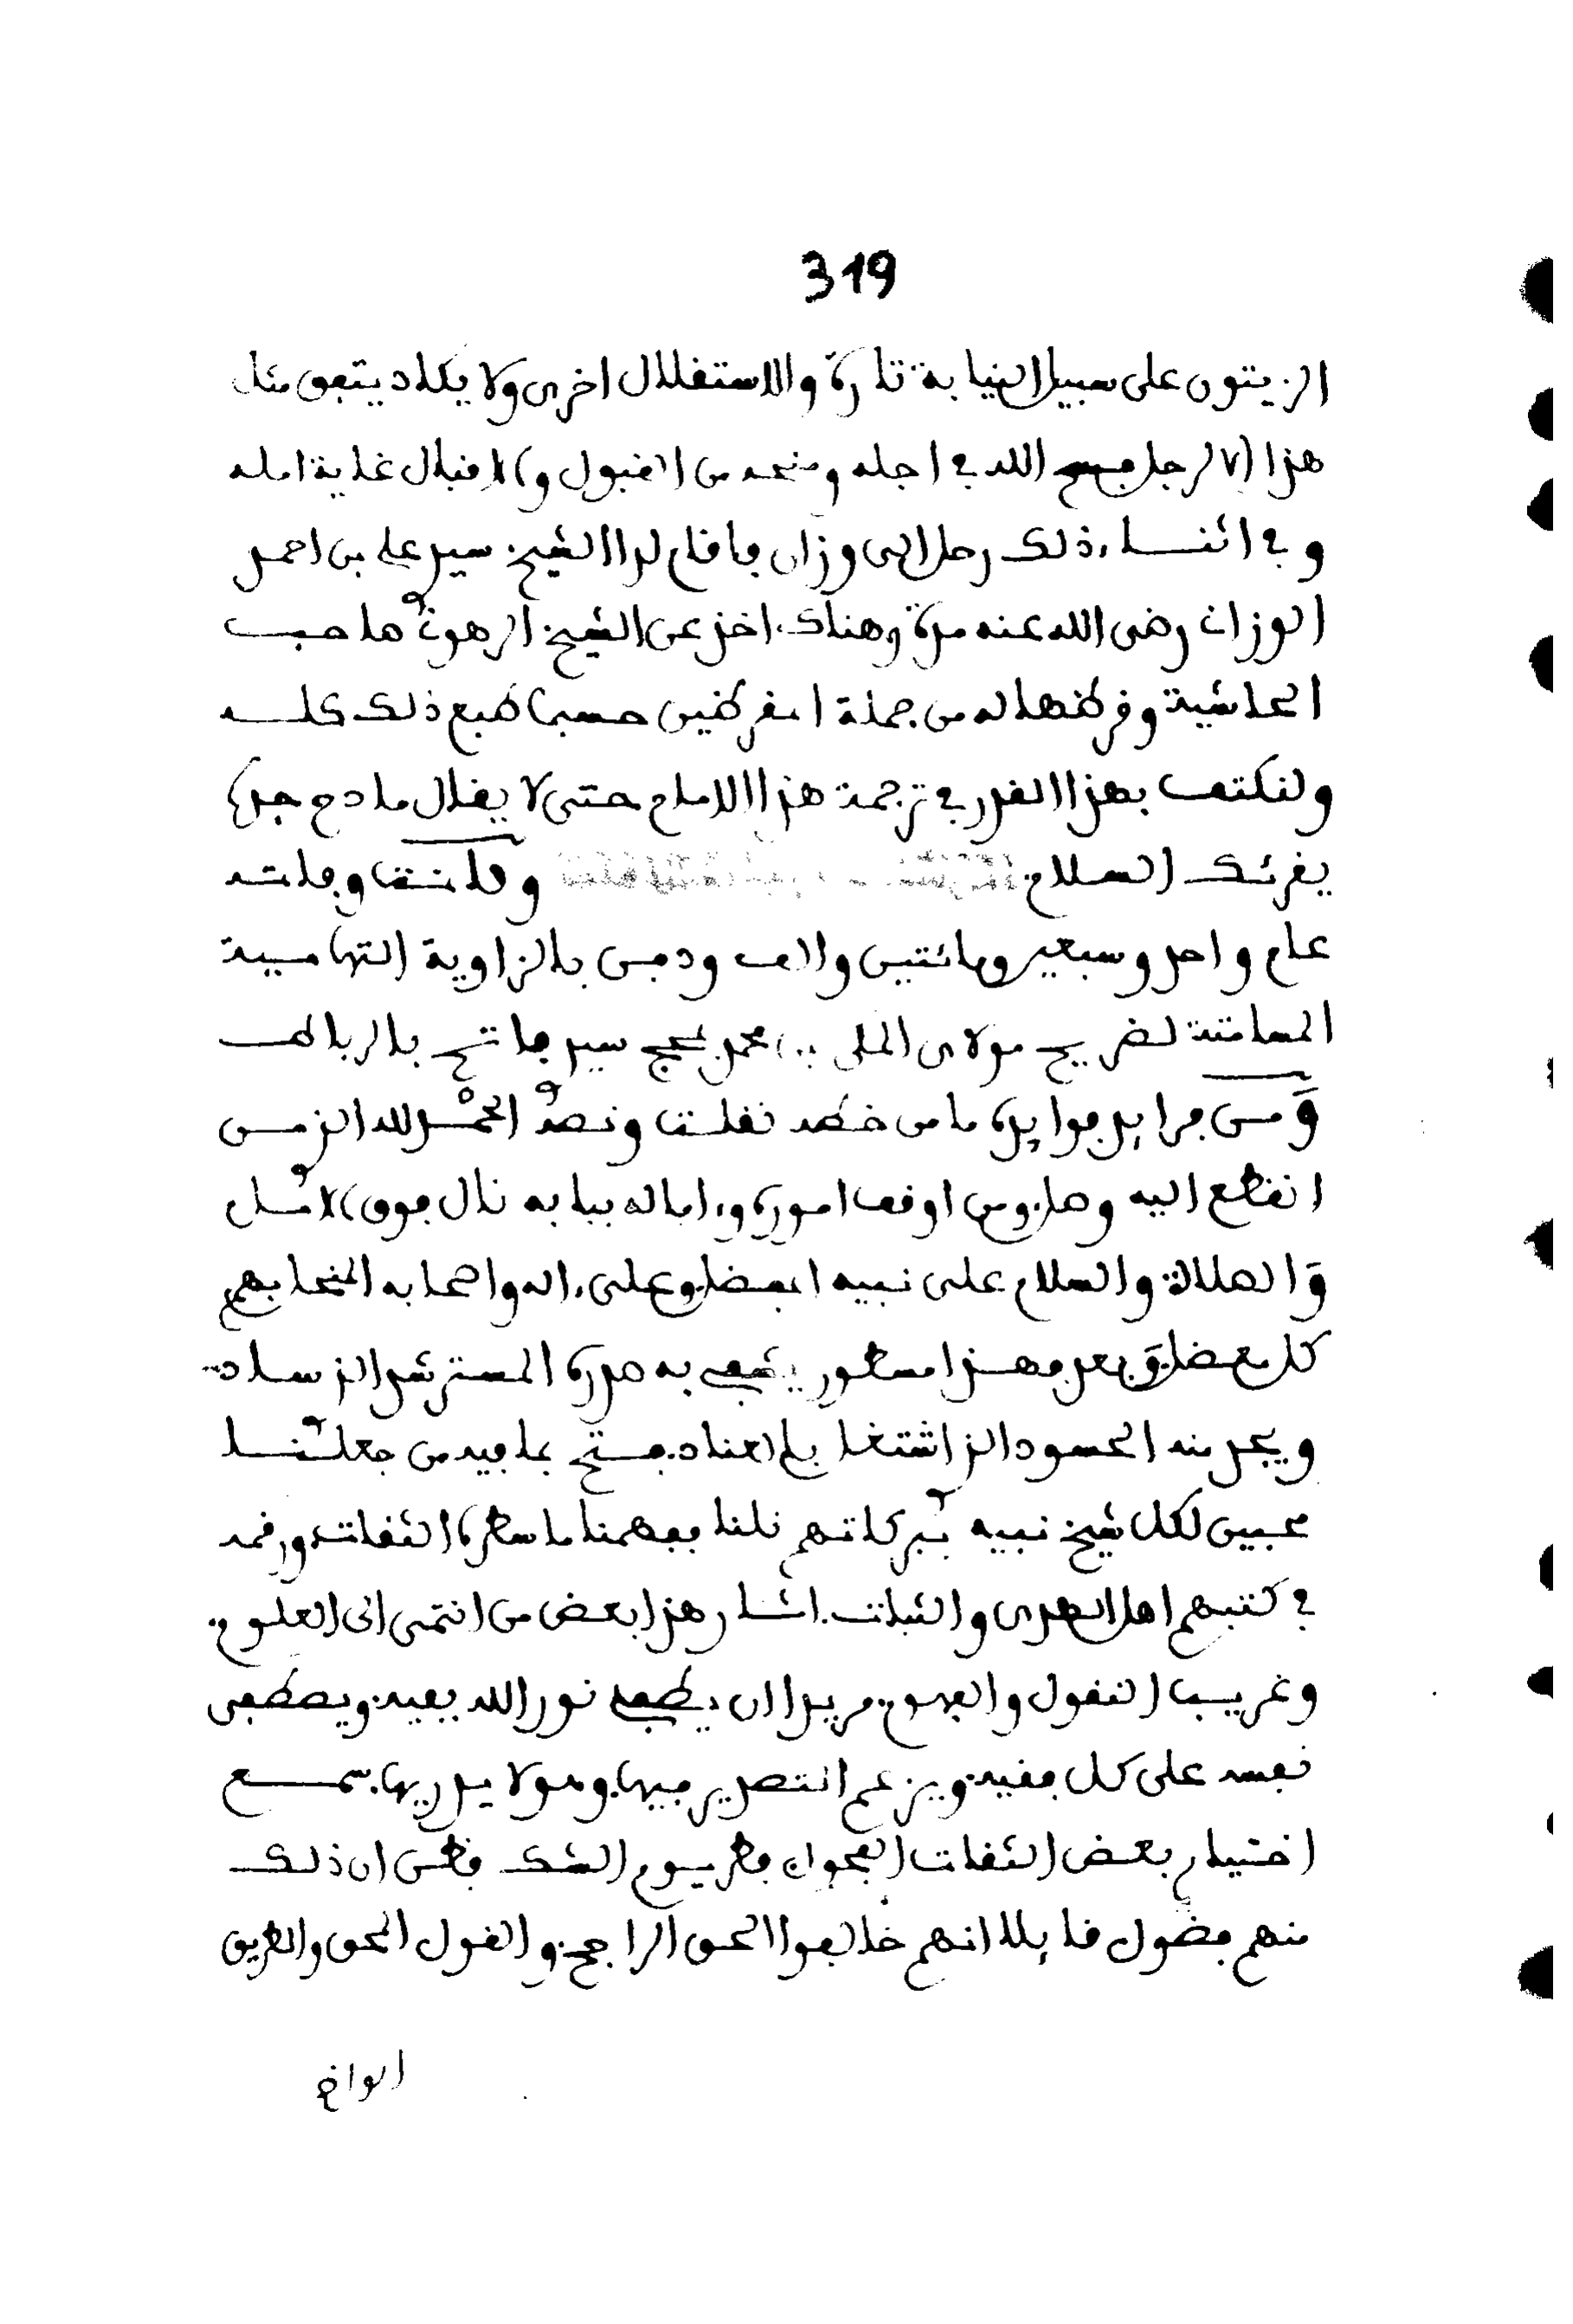 319
الزيتون على سبيل النيابة تارة والاستقلال اخرى ولا يكاد يتفق مثل
هذا الا لرجل فسح الله في اجله ومنحه من القبول والاقبال غاية امله
وفي اثناء ذلك رحل الى وزان فاقام لدا الشيخ سيد علي بن احمد
الوزاني رضى الله عنه مدة وهناك اخذ عن الشيخ الرهوني صاحب
الحاشية وقرظها له من جملة المقرظين حسبما طبع ذلك كله
ولنكتف بهذا القدر في ترجمة هذا الامام حتى لا يقال مادح جده
يقرئك السلام وكانت وفاته
عام واحد وسبعين ومائتين والف ودفن بالزاوية التهامية
المسامتة لضريح مولاى المكى بن محمد بحج سيد فاتح بالرباط
ومن فرايد فوايده ما من خطه نقلت ونصه الحمد لله الذ من
انقطع اليه وصل ومن اوقف اموره واماله ببابه نال فوق الامل
والصلاة والسلام على نبيه المفضل وعلى اله واصحابه المنحا بهم
كل معضل وبعد فهذا مسطور يشفى به صدره المسترشد الذ ساد
ويجد منه الحسود الذ اشتغل بالعناد فتح بما فيه من جعلنا
محبين لكل شيخ نبيه ببركاتهم نلنا بفهمنا ما سطره الثقات ورقمه
في كتبهم اهل الهدى والثبات اشار هذا بعض من انتمى الى العلوم
وغريب النقول والفهوم مريدا ان يطفئ نور الله بفيه ويصطفى
نفسه على كل فقيه ويزعم التصدير فيها وهو لا يدريها سمع
اختيار بعض الثقات الفحول فطر يوم الشك فظن ان ذلك
منهم فضول قايلا انهم خالفوا الحق الراجح والقول الحق والطريق
الواضح